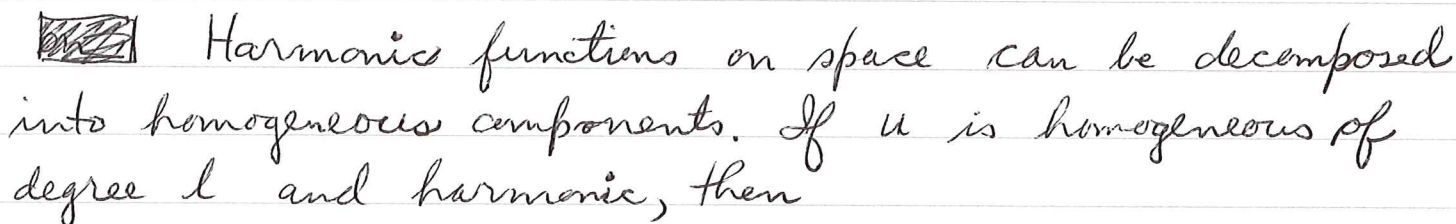 Harmonic functions on space can be decomposed
into homogeneous components. If u is homogeneous of
degree l and harmonic, then